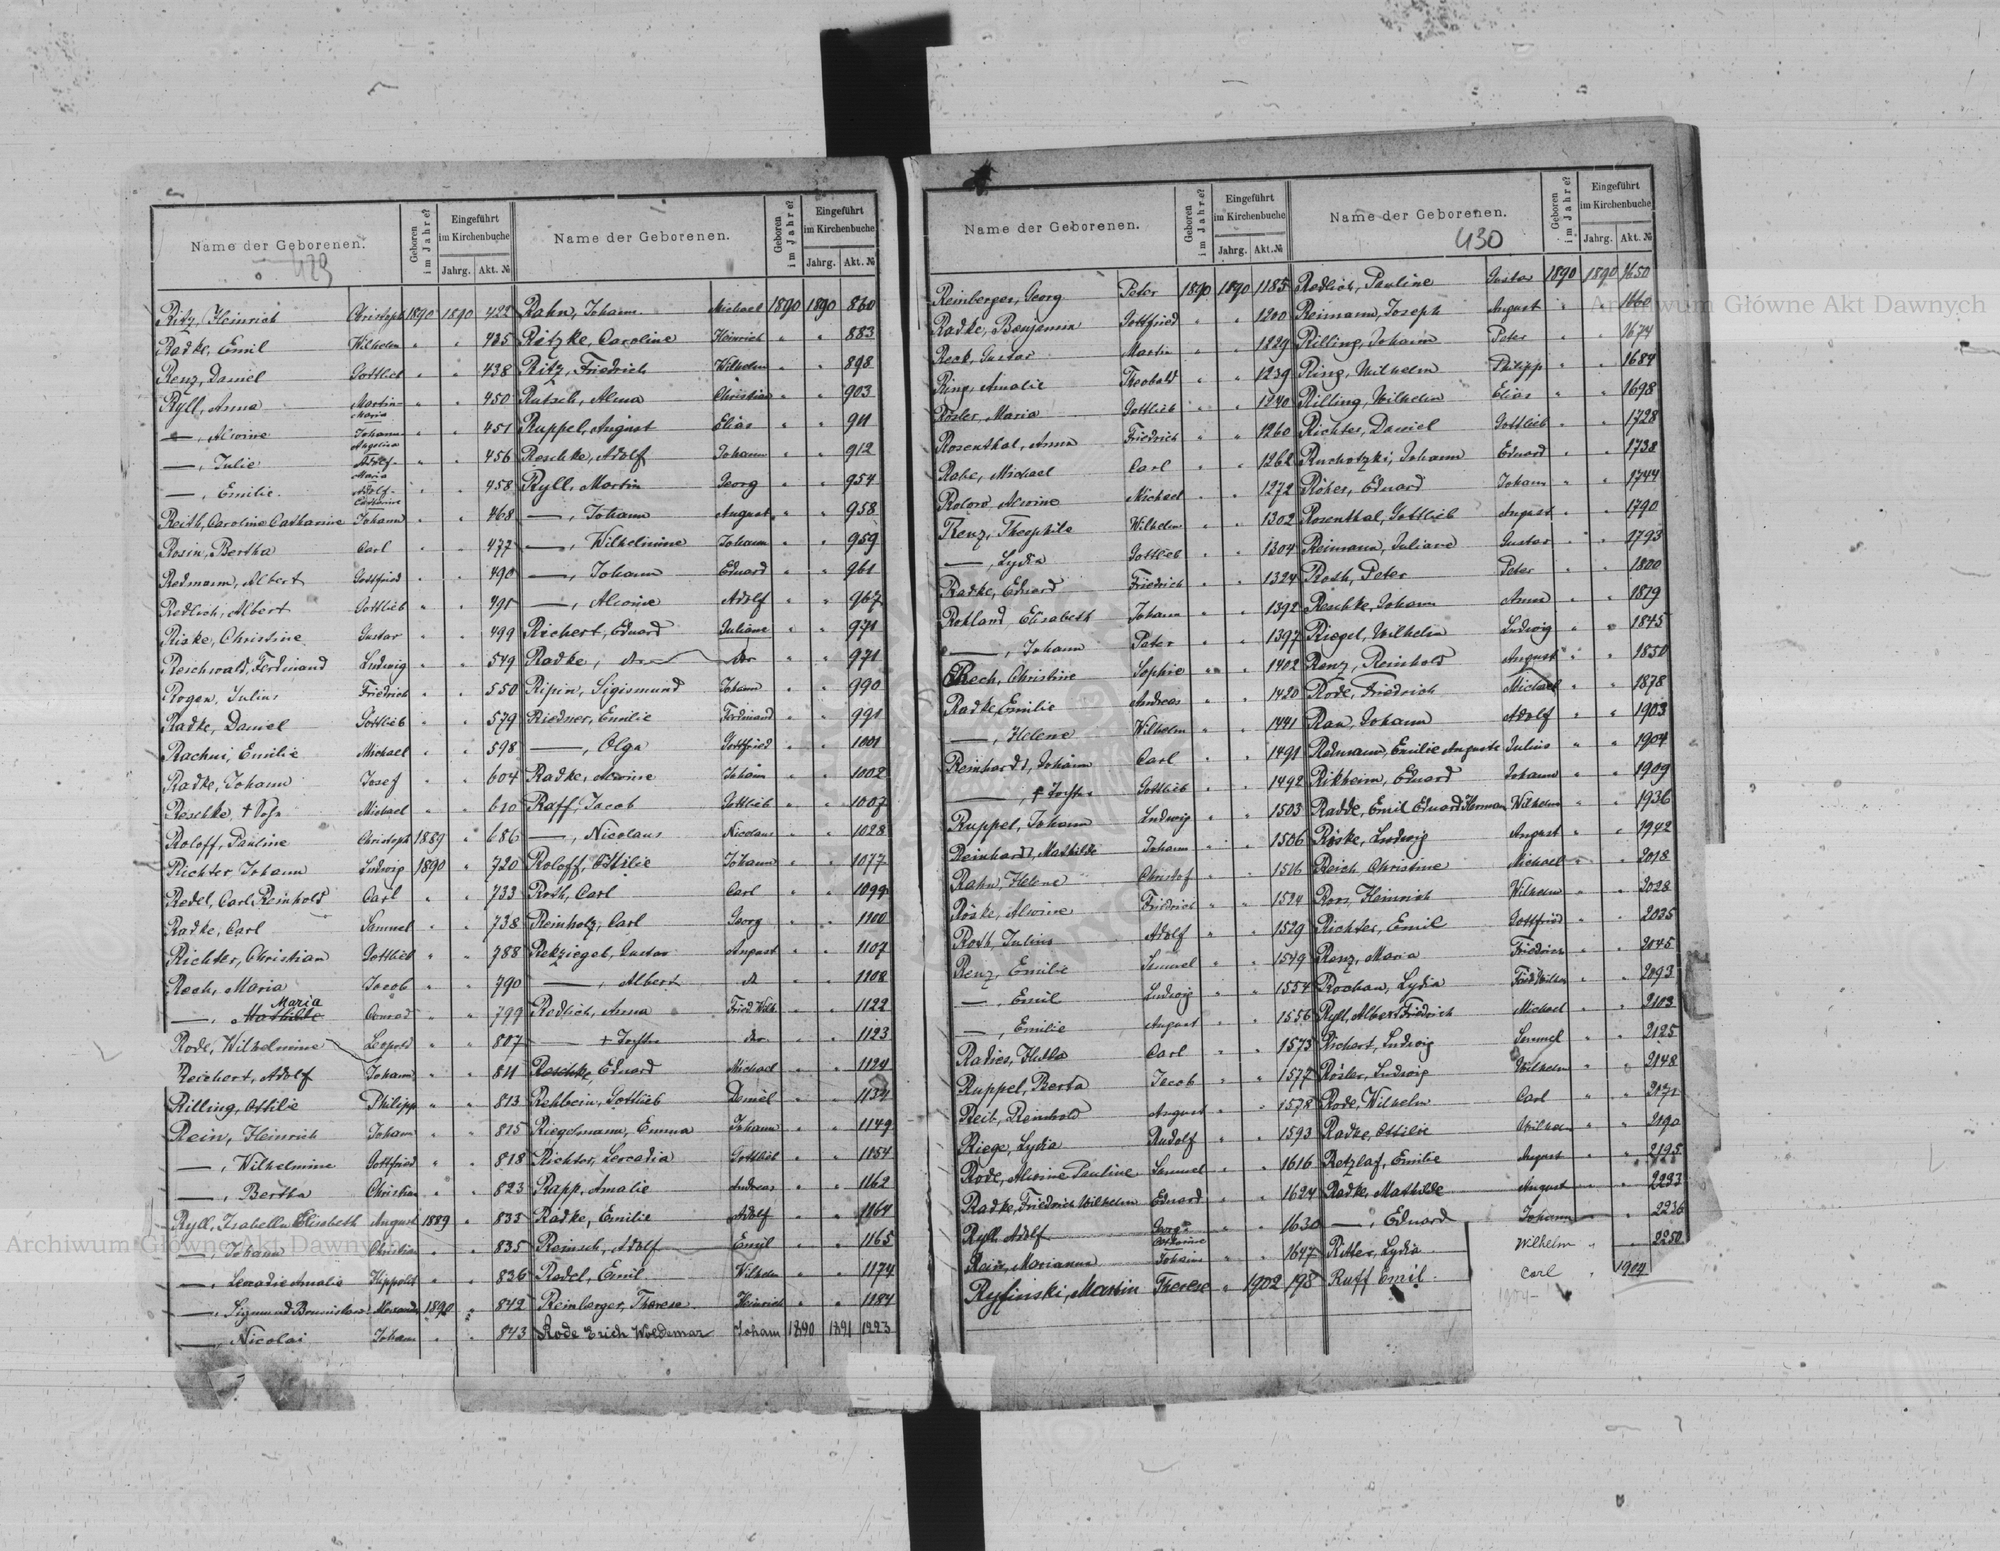 Name der Geborenen.
Geboren im Jahre?
Eingeführt im Kirchenbuche
Jahrg. Akt. №
Ritz, Heinrich Christoph 1890 1890 422
Radke, Emil Wilhelm " " 425
Renz, Daniel Gottlieb " " 438
Ryll, Anna Martin Maria " " 450
—, Alwine Johann Angelina " " 451
—, Julie Adolf Maria " " 456
—, Emilie Adolf Catharine " " 458
Reith, Caroline Catharine Johann " " 468
Rosin, Bertha Carl " " 477
Redmann, Albert Gottfried " " 490
Redlich, Albert Gottlieb " " 491
Riske, Christine Gustav " " 499
Reschwald, Ferdinand Ludwig " " 549
Rogen, Julius Friedrich " " 550
Radke, Daniel Gottlieb " " 579
Rachui, Emilie Michael " " 598
Radke, Johann Josef " " 604
Reschke, † Sohn Michael " " 610
Roloff, Pauline Christoph 1889 " 686
Richter, Johann Ludwig 1890 " 720
Redel, Carl Reinhold Carl " " 733
Radke, Carl Samuel " " 738
Richter, Christian Gottlieb " " 788
Rech, Maria Jacob " " 790
—, Maria Conrad " " 799
Rode, Wilhelmine Leopold " " 807
Reichert, Adolf Johann " " 811
Rilling, Ottilie Philipp " " 813
Rein, Heinrich Johann " " 815
—, Wilhelmine Gottfried " " 818
—, Bertha Christian " " 823
Ryll, Isabella Elisabeth August 1889 " 835
—, Johann Christian " " 835
—, Leocadie Amalie Hippolit " " 836
—, Sigmund Bronislaw Alexander 1890 " 842
—, Nicolai Johann " " 843
Name der Geborenen.
Geboren im Jahre?
Eingeführt im Kirchenbuche
Jahrg. Akt. №
Rahn, Johann Michael 1890 1890 860
Ratzke, Caroline Heinrich " " 883
Ritz, Friedrich Wilhelm " " 898
Rutsch, Alma Christian " " 903
Ruppel, August Elias " " 911
Reschke, Adolf Johann " " 912
Ryll, Martin Georg " " 954
—, Johann August " " 958
—, Wilhelmine Johann " " 959
—, Johann Eduard " " 961
—, Alwine Adolf " " 967
Richert, Eduard Juliane " " 971
Radke, 971
Ripin, Sigismund Johann " " 990
Riedner, Emilie Ferdinand " " 991
—, Olga Gottfried " " 1001
Radke, Alwine Johann " " 1002
Raff, Jacob Gottlieb " " 1007
—, Nicolaus Nicolaus " " 1028
Roloff, Ottilie Johann " " 1077
Roth, Carl Carl " " 1099
Reinholz, Carl Georg " " 1100
Rekziegel, Gustav August " " 1107
—, Albert " " 1108
Redlich, Anna Fried Wilh. " " 1122
— † Tochter " " 1123
Reschke, Eduard Michael " " 1124
Rehbein, Gottlieb Daniel " " 1134
Riegelmann, Emma Johann " " 1149
Richter, Leocadia Gottlieb " " 1154
Rapp, Amalie Andreas " " 1162
Radke, Emilie Adolf " " 1164
Reinsch, Adolf Emil " " 1165
Radel, Emil Wilhelm " " 1174
Reinberger, Therese Heinrich " " 1184
Rode Erich Woldemar Johann 1890 1891 1223
Name der Geborenen.
Geboren im Jahre?
Eingeführt im Kirchenbuche
Jahrg. Akt. №
Reinberger, Georg Peter 1890 1890 1185
Radke, Benjamin Gottfried " " 1200
Reck, Gustav Martin " " 1229
Ring, Amalie Theobald " " 1239
Rösler, Maria Gottlieb " " 1240
Rosenthal, Anna Friedrich " " 1260
Rahe, Michael Carl " " 1262
Rolow, Alwine Michael " " 1272
Renz, Theophile Wilhelm " " 1302
—, Lydia Gottlieb " " 1304
Radke, Eduard Friedrich " " 1324
Rohland, Elisabeth Johann " " 1392
—, Johann Peter " " 1397
Rech, Christine Sophie " " 1402
Radke, Emilie Andreas " " 1420
—, Helene Wilhelm " " 1441
Reinhardt, Johann Carl " " 1491
—, † Tochter Gottlieb " " 1492
Ruppel, Johann Ludwig " " 1503
Reinhardt, Mathilde Johann " " 1506
Rahn, Helene Christof " " 1516
Röske, Alwine Friedrich " " 1524
Roth, Julius Adolf " " 1529
Renz, Emilie Samuel " " 1549
—, Emil Ludwig " " 1554
—, Emilie August " " 1556
Radies, Hulda Carl " " 1573
Ruppel, Berta Jacob " " 1577
Reib, Reinhold August " " 1578
Riege, Lydia Rudolf " " 1593
Rode, Alwine Pauline Samuel " " 1616
Radke, Friedrich Wilhelm Eduard " " 1624
Ryll, Adolf Georg " " 1630
Rein, Marianna Johann " " 1647
Rysinski, Martin Therese " 1902 198
Name der Geborenen.
430
Geboren im Jahre?
Eingeführt im Kirchenbuche
Jahrg. Akt. №
Redlich, Pauline Gustav 1890 1890 1650
Reimann, Joseph August " 1660
Rilling, Johann Peter " " 1674
Ring, Wilhelm Philipp " " 1684
Rilling, Wilhelm Elias " " 1698
Richter, Daniel Gottlieb " " 1728
Ruchotzki, Johann Eduard " " 1738
Röher, Eduard Johann " " 1744
Rosenthal, Gottlieb August " " 1790
Reimann, Juliane Gustav " " 1793
Roth, Peter Peter " " 1800
Reschke, Johann Anna " " 1819
Riegel, Wilhelm Ludwig " " 1845
Renz, Reinhold August " " 1850
Rode, Friedrich Michael " " 1878
Rau, Johann Adolf " " 1903
Redmann, Emilie Auguste Julius " " 1904
Rikheim, Eduard Johann " " 1909
Radde, Emil Eduard Herman Wilhelm " " 1936
Röske, Ludwig August " " 1942
Reich, Christine Michael " " 2018
Ross, Heinrich Wilhelm " " 2028
Richter, Emil Gottfried " " 2035
Renz, Maria Friedrich " " 2045
Rochau, Lydia Fried Wilhelm " " 2093
Ryll, Albert Friedrich Michael " " 2103
Richert, Ludwig Samuel " " 2125
Rösler, Ludwig Wilhelm " " 2148
Rode, Wilhelm Carl " " 2171
Radke, Ottilie Wilhelm " " 2190
Retzlaf, Emilie August " " 2195
Radke, Mathilde August " " 2233
—, Eduard Johann " " 2236
Ritter, Lydia Wilhelm " " 2250
Ruff Emil Carl " 1904
Archiwum Główne Akt Dawnych
Archiwum Główne Akt Dawnych